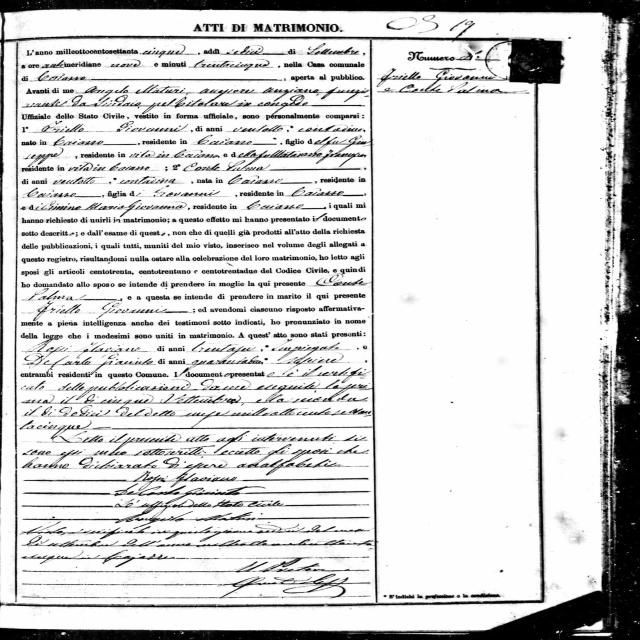 ATTI DI MATRIMONIO.
19
L'anno millottocentosettanta cinque, addì sedici di Settembre,
a ore antimeridiane nove e minuti trentacinque, nella Casa comunale
di Caiazzo, aperta al pubblico.
Avanti di me Angelo Maturi, assessore anziano funzi
Uffiziale dello Stato Civile, vestito in forma uffiziale, sono personalmente comparsi:
1° Friello Giovanni, di anni ventotto, contadino
nato in Caiazzo, residente in Caiazzo, figlio del fu Giu
seppe, residente in vita in Caiazzo e d
residente in vita in Caiazzo; 2° Conte Palma
di anni ventotto, contadina, nata in Caiazzo, residente in
Caiazzo, figlia di Giovanni, residente in Caiazzo
e di Maria Giovanna, residente in Caiazzo, i quali mi
hanno richiesto di unirli in matrimonio; a questo effetto mi hanno presentato il documento
sotto descritto; e dall'esame di questo, non che di quelli già prodotti all'atto della richiesta
delle pubblicazioni, i quali tutti, muniti del mio visto, inserisco nel volume degli allegati a
questo registro, risultandomi nulla ostare alla celebrazione del loro matrimonio, ho letto agli
sposi gli articoli centotrenta, centotrentuno e centotrentadue del Codice Civile, e quindi
ho domandato allo sposo se intende di prendere in moglie la qui presente Conte
Palma, e a questa se intende di prendere in marito il qui presente
Friello Giovanni; ed avendomi ciascuno risposto affermativa-
mente a piena intelligenza anche dei testimoni sotto indicati, ho pronunziato in nome
della legge che i medesimi sono uniti in matrimonio. A quest' atto sono stati presenti:
Rossi Flaviano di anni Impiegato e
De Carlo Giacinto di anni quarantadue
entrambi residenti in questo Comune. I document presentat è il certifi
cato delle pubblicazioni da me eseguite la pri
ma il di cinque Settembre, e la seconda
il di dodici del detto mese milleottocentosettan
tacinque
Letto il presente atto agli intervenuti si
sono essi meco sottoscritti, eccetto gli sposi che
hanno dichiarato di essere analfabeti.
Rossi Flaviano
De Carlo Giacinto
L'uffizial dello Stato Civile
Angelo Maturi
Numero
Friello Giovanni
e Conte Palma
* S'indichi la professione o la condizione.